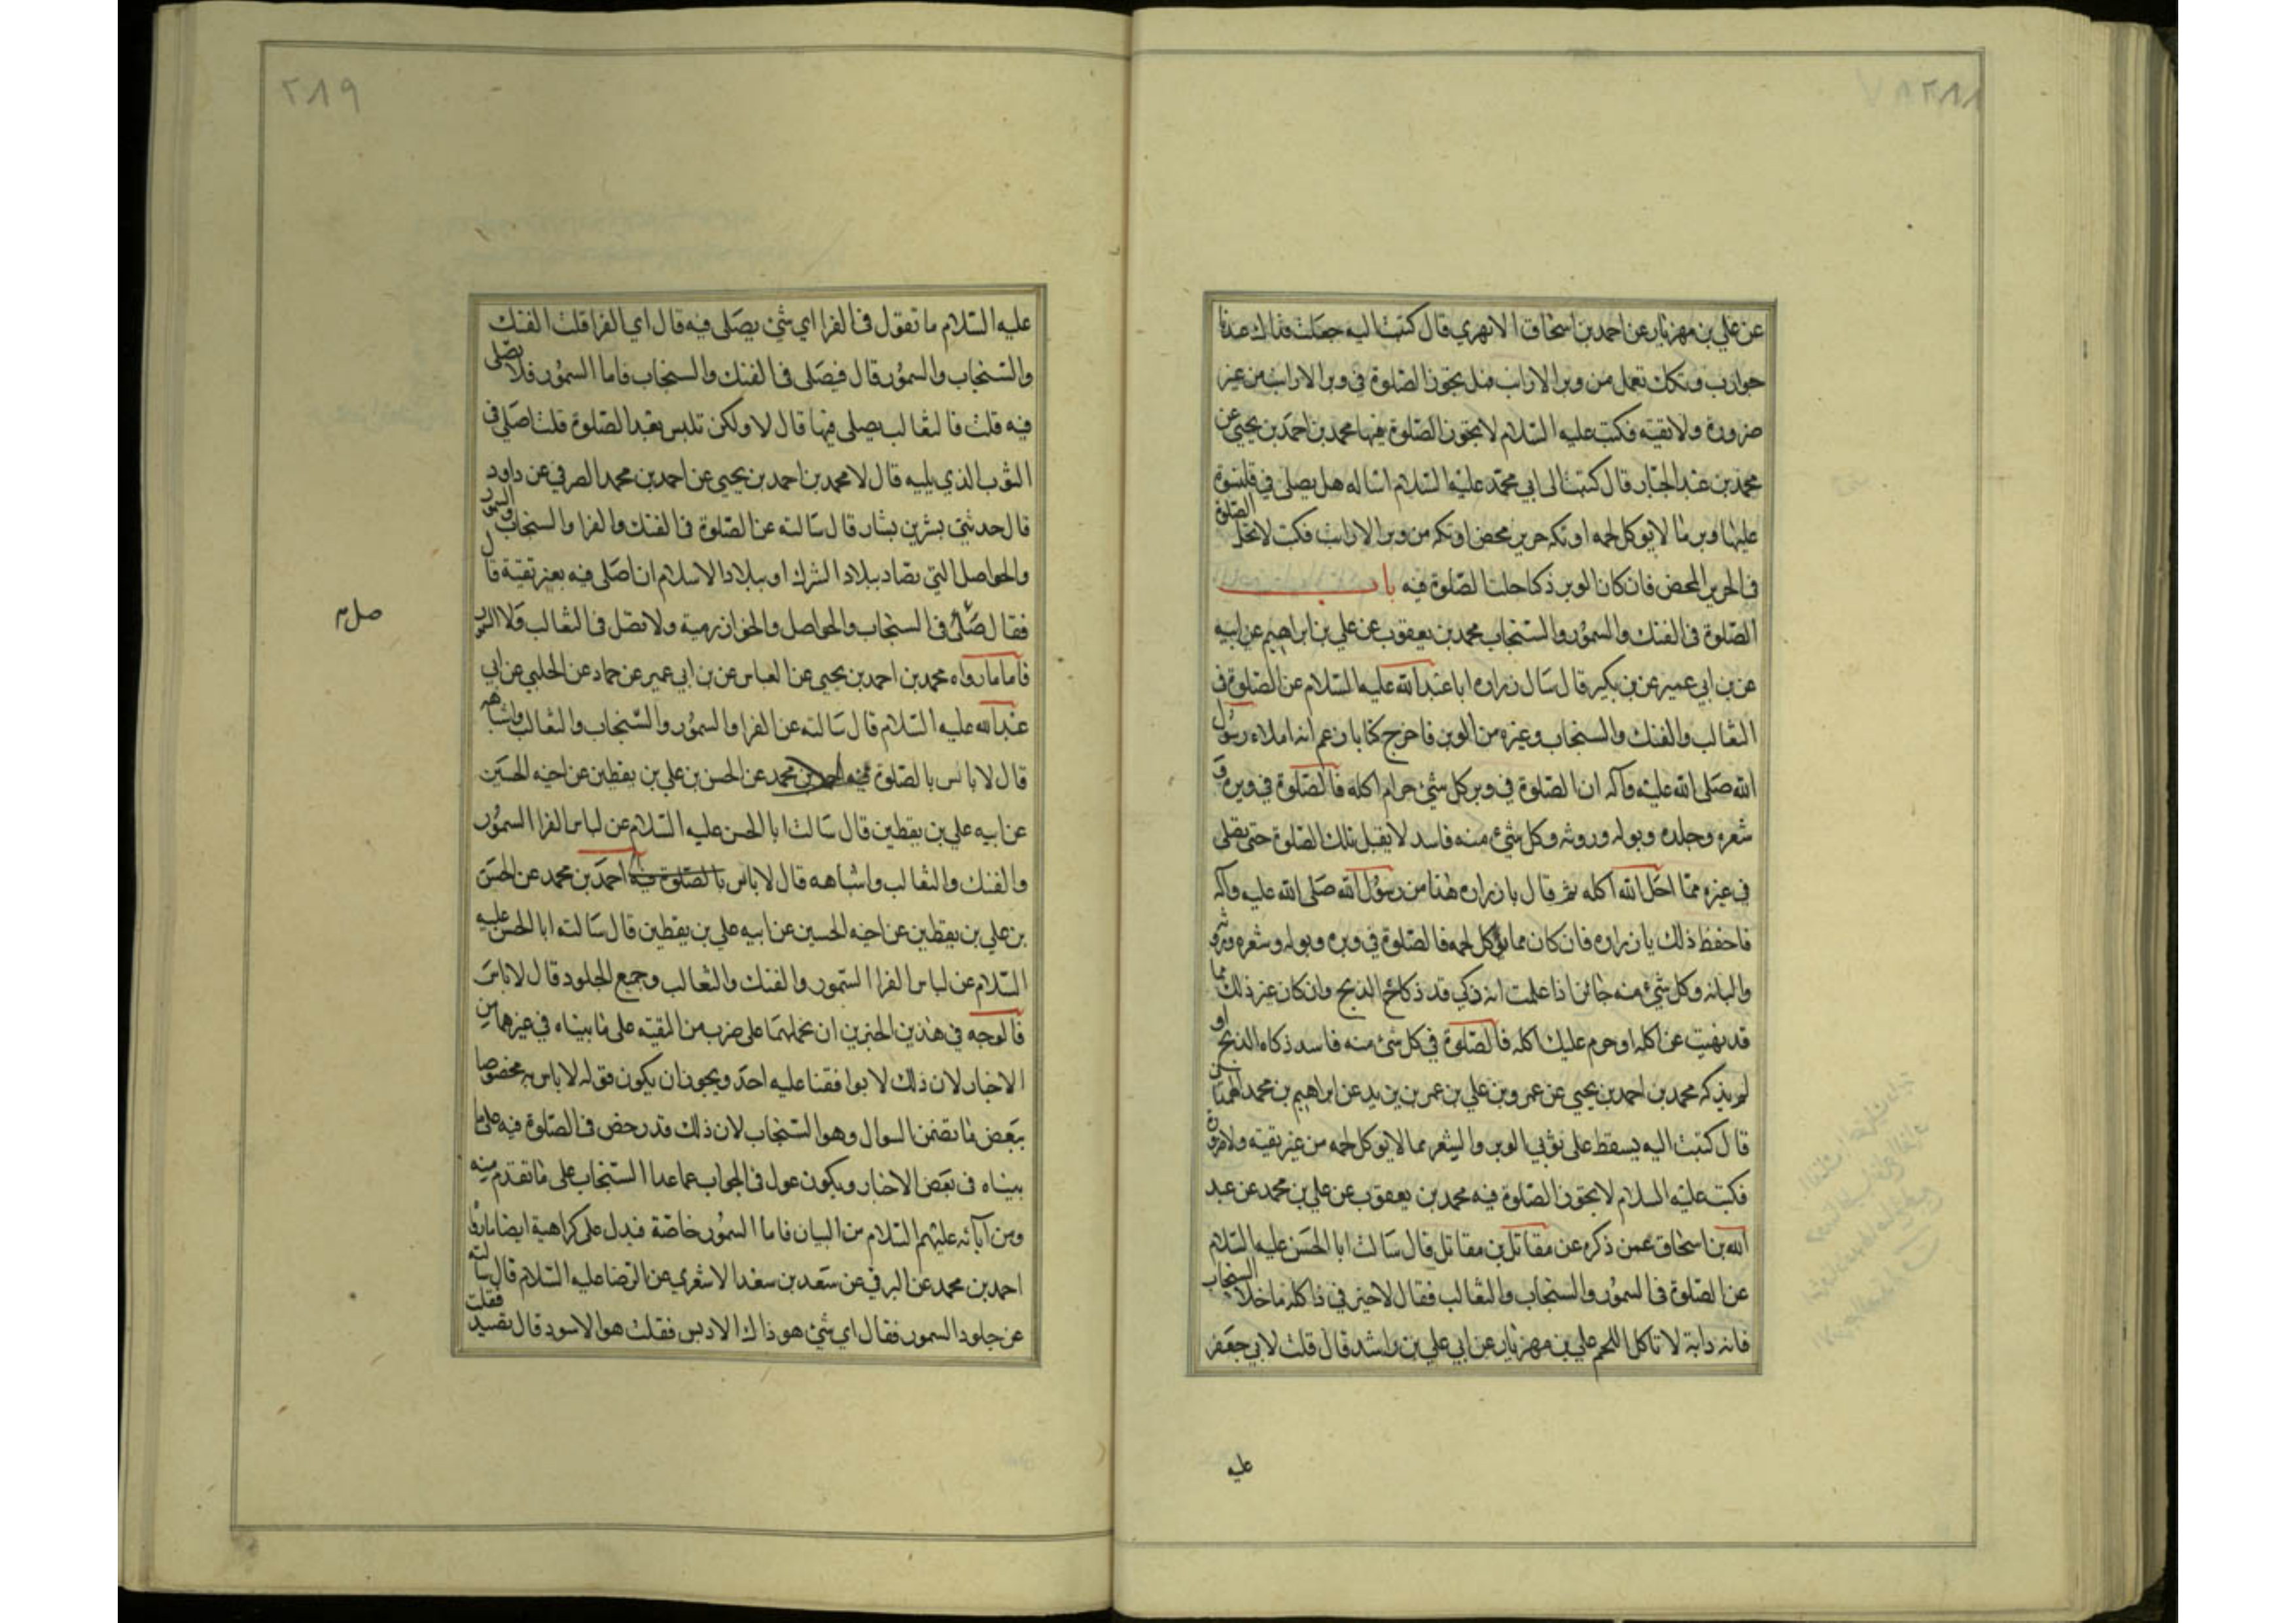 ٢٨٨
عن علي بن مهزيار عن احمد بن اسحاق الابهري قال كتبت اليه جعلت فداك عندنا
جوارب وتكك تعمل من وبر الارانب فهل يجوز الصلوة في وبر الارانب من غير
ضرورة ولا تقية فكتب عليه السلام لا يجوز الصلوة فيها محمد بن احمد بن يحيى عن
محمد بن عبد الجبار قال كتبت الى ابي محمد عليه السلام اساله هل يصلى في قلنسوة
عليها وبر ما لا يوكل لحمه او تكه حرير محض او تكه من وبر الارانب فكتب لا تحل الصلوة
في الحرير المحض فان كان الوبر ذكيا حلت الصلوة فيه باب
الصلوة في الفنك والسمور والسنجاب محمد بن يعقوب عن علي بن ابراهيم عن ابيه
عن بن ابي عمير عن بن بكير قال سال زراره ابا عبد الله عليه السلام عن الصلوة في
الثعالب والفنك والسنجاب وغيره من الوبر فاخرج كتابا زعم انه املاء رسول
الله صلى الله عليه وآله ان الصلوة في وبر كل شئ حرام اكله فالصلوة في وبره و
شعره وجلده وبوله وروثه وكل شئ منه فاسد لا يقبل تلك الصلوة حتى يصلى
في غيره مما احل الله اكله ثم قال يا زراره هذا من رسول الله صلى الله عليه وآله
فاحفظ ذلك يا زراره فان كان مما يؤكل لحمه فالصلوة في وبره وبوله وشعره وروثه
والبانه وكل شئ منه جائز اذا علمت انه ذكي قد ذكاه الذبح وان كان غير ذلك مما
قد نهيت عن اكله او حرم عليك اكله فالصلوة في كل شئ منه فاسد ذكاه الذبح او
لم يذكه محمد بن احمد بن يحيى عن عمر وبن علي بن عمر بن يزيد عن ابراهيم بن محمد الهمداني
قال كتبت اليه يسقط على ثوبي الوبر والشعر مما لا يوكل لحمه من غير تقية ولا ضرورة
فكتب عليه السلام لا يجوز الصلوة فيه محمد بن يعقوب عن علي بن محمد عن عبد
الله بن اسحاق عمن ذكره عن مقاتل بن مقاتل قال سالت ابا الحسن عليه السلام
عن الصلوة في السمور والسنجاب والثعالب فقال لا خير في ذا كله ما خلا السنجاب
فانه دابة لا تاكل اللحم علي بن مهزيار عن ابي علي بن راشد قال قلت لابي جعفر
عليه
٢٨٩
عليه السلام ما تقول في الفرا اي شئ يصلى فيه قال اي الفرا قلت الفنك
والسنجاب والسمور قال فيصلى في الفنك والسنجاب فاما السمور فلا يصلى
فيه قلت فالثعالب يصلى فيها قال لا ولكن تلبس بعد الصلوة قلت اصلي في
الثوب الذي يليه قال لا محمد بن احمد بن يحيى عن احمد بن محمد الصرفي عن داود
قال حدثني بشر بن بشار قال سالته عن الصلوة في الفنك والفرا والسنجاب والسمور
والحواصل التي تصاد ببلاد الشرك او ببلاد الاسلام ان اصلى فيه بغير تقية قال
فقال صل في السنجاب والحواصل والخوارزمية ولا تصل في الثعالب ولا السمور
صل
فاما ما رواه محمد بن احمد بن يحيى عن العباس عن بن ابي عمير عن حماد عن الحلبي عن ابي
عبد الله عليه السلام قال سالته عن الفرا والسمور والسنجاب والثعالب واشباهه
قال لا باس بالصلوة فيه احمد بن محمد عن الحسن بن علي بن يقطين عن اخيه الحسين
عن ابيه علي بن يقطين قال سالت ابا الحسن عليه السلام عن لباس الفرا السمور
والفنك والثعالب واشباهه قال لا باس بالصلوة فيه احمد بن محمد عن الحسن
بن علي بن يقطين عن اخيه الحسين عن ابيه علي بن يقطين قال سالته ابا الحسن عليه
السلام عن لباس الفرا السمور والفنك والثعالب وجميع الجلود قال لا باس
فالوجه في هذين الخبرين ان نحملهما على ضرب من التقية على ما بيناه في غيرهما من
الاخبار لان ذلك لا يوافقنا عليه احد ويجوز ان يكون قوله لا باس به مخصوصا
ببعض ما تضمن السوال وهو السنجاب لان ذلك قد رخص في الصلوة فيه على ما
بيناه في بعض الاخبار ويكون عول في الجواب عما عدا السنجاب على ما تقدم منه
ومن آبائه عليهم السلام من البيان فاما السمور خاصة فيدل على كراهية ايضا ما رواه
احمد بن محمد عن البرقي عن سعد بن سعد الاشعري عن الرضا عليه السلام قال سالته
عن جلود السمور فقال اي شئ هو ذاك الادبس فقلت هو الاسود قال يصيد فقلت